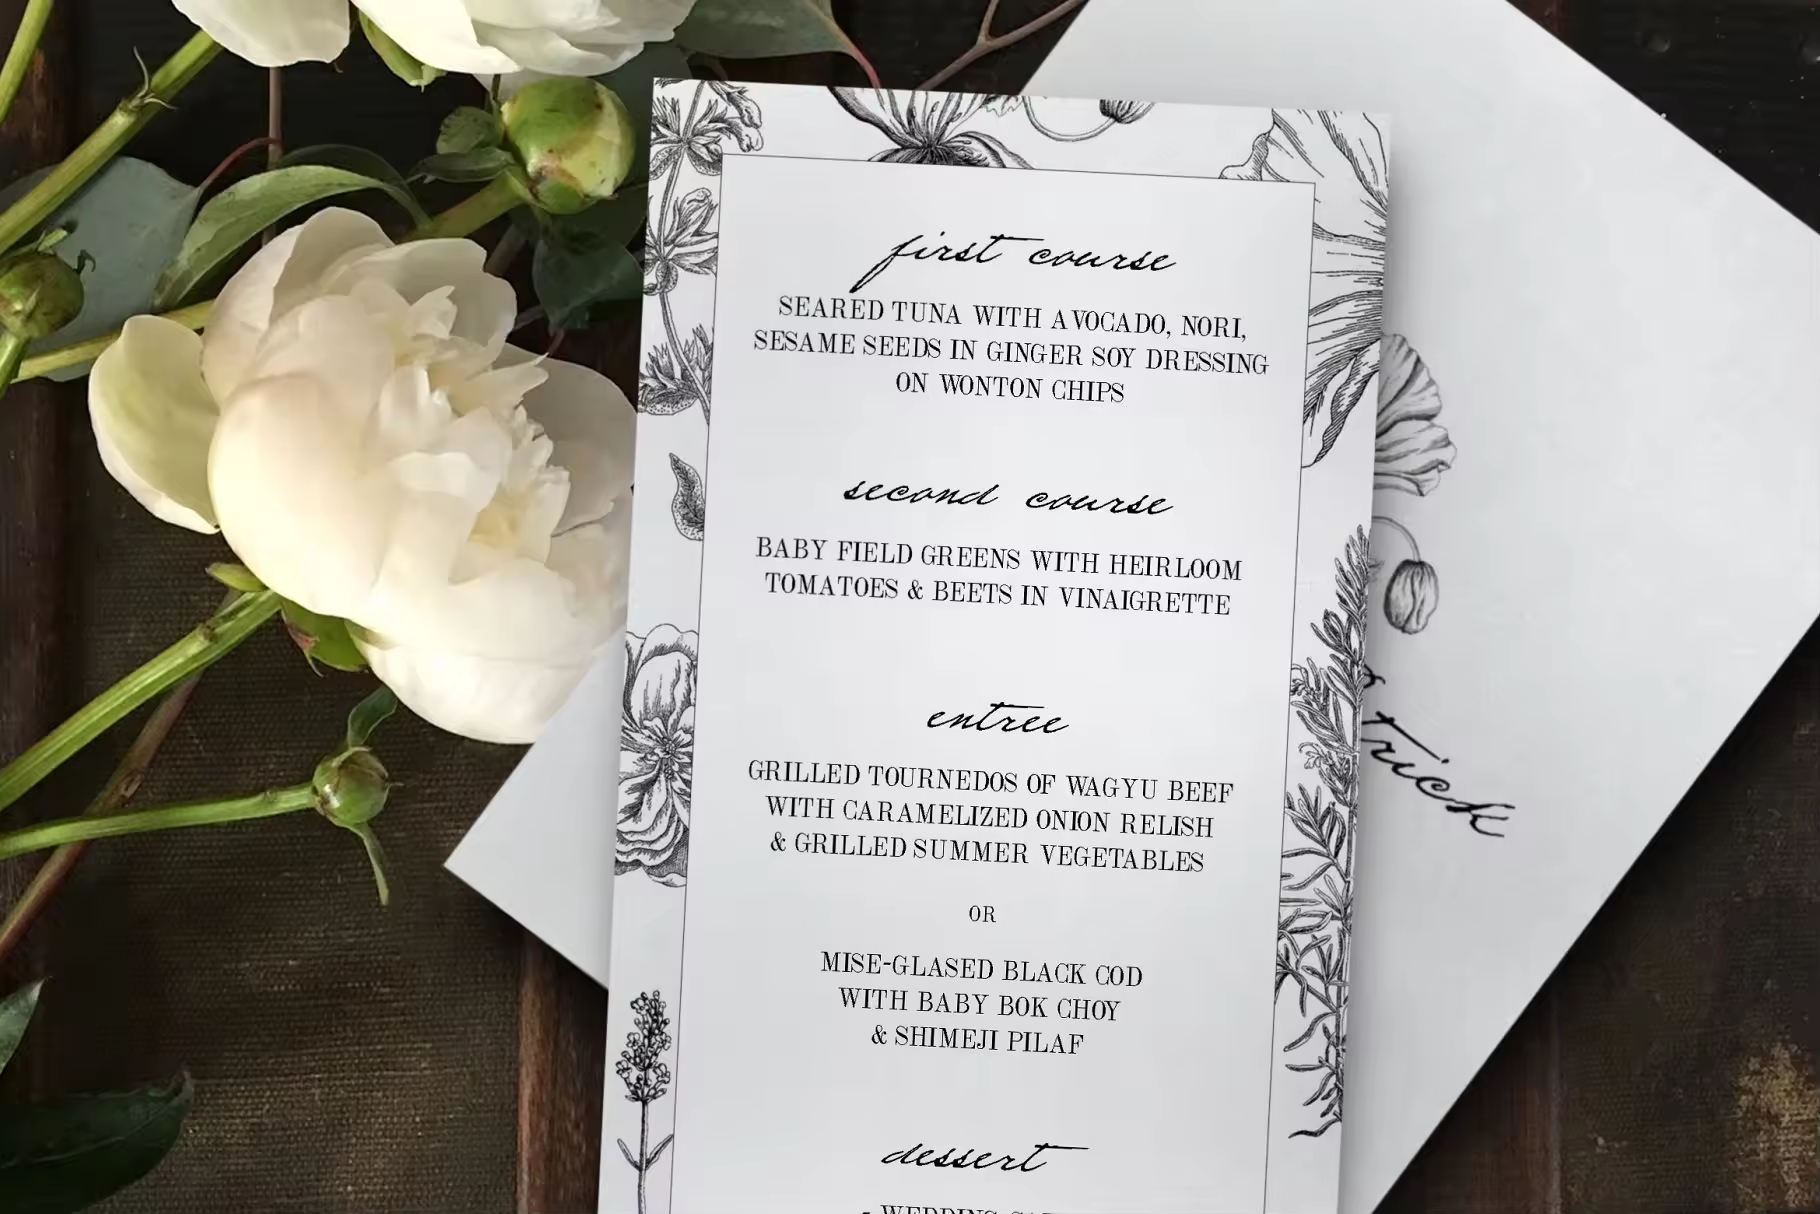 first course
SEARED TUNA WITH AVOCADO, NORI,
SESAME SEEDS IN GINGER SOY DRESSING
ON WONTON CHIPS
second course
BABY FIELD GREENS WITH HEIRLOOM
TOMATOES & BEETS IN VINAIGRETTE
entree
GRILLED TOURNEDOS OF WAGYU BEEF
WITH CARAMELIZED ONION RELISH
& GRILLED SUMMER VEGETABLES
OR
MISE-GLASED BLACK COD
WITH BABY BOK CHOY
& SHIMEJI PILAF
dessert
WEDDING
trick